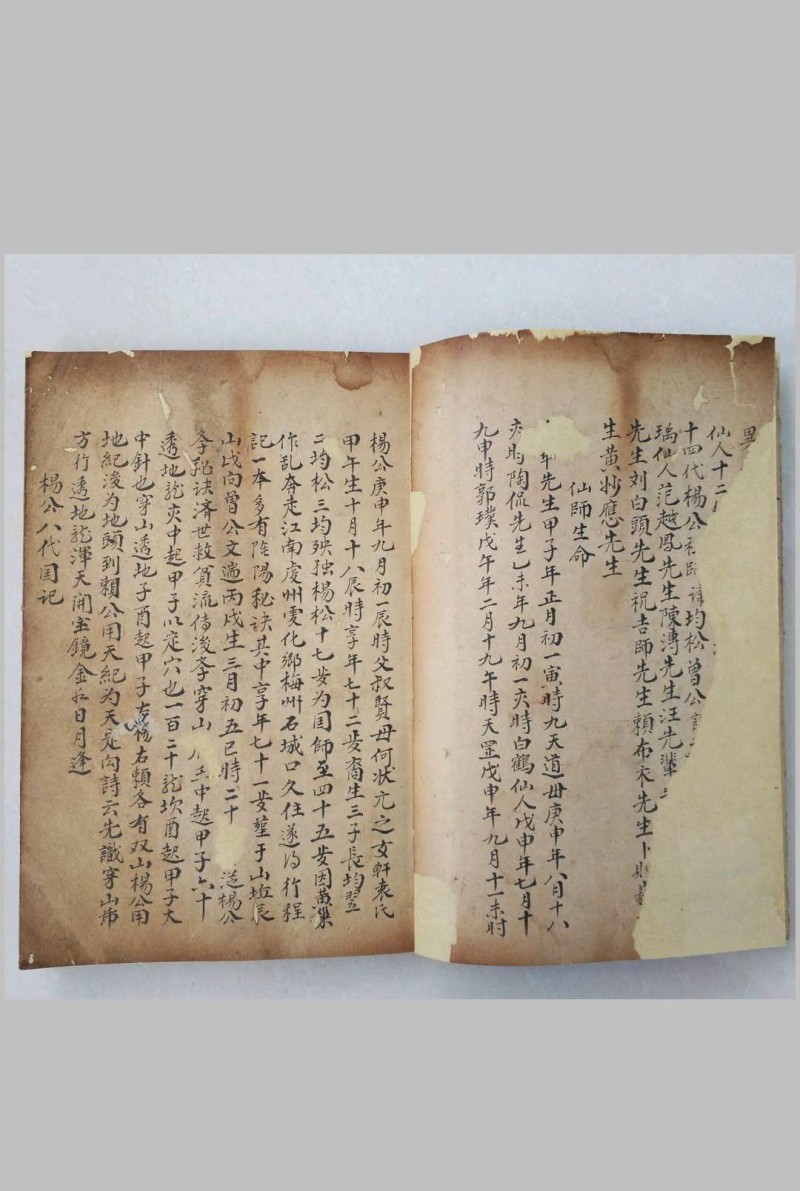 異
仙人十二
十四代楊公 均松曾公
瑀仙人范越鳳先生陳溥先生汪先輩
先生刘白頭先生祝吉師先生賴布衣先生卜
生黄妙應先生
仙師生命
年先生甲子年正月初一寅時九天道母庚申年八月十八
亥时陶侃先生乙未年九月初一亥時白鶴仙人戊申年七月十
九申時郭璞戊午年二月十九午時天罡戊申年九月十一未时
楊公庚申年九月初一辰時父叔賢母何状元之女軒袁氏
甲午生十月十八辰時享年七十二歲裔生三子長均翌
二均松三均殃独楊松十七岁为国師至四十五岁因黄巢
作乱奔走江南虔州雩化鄉梅州石城口久住遂得行程
記一本多有陰陽秘诀其中享年七十一岁塟于山垢辰
山戌向曾公文遄丙戌生三月初五巳時二十 楊公
李秘诀済世救貧流傳後李穿山 中起甲子六十
透地龍亥中起甲子以定穴也一百二十龍坎酉起甲子大
中針也穿山透地子酉起甲子 右賴各有双山楊公用
地紀後为地頭到賴公用天紀为天 诗云先識穿山帍
方行透地龍渾天開宝鏡金在日月逢
楊公八代国记